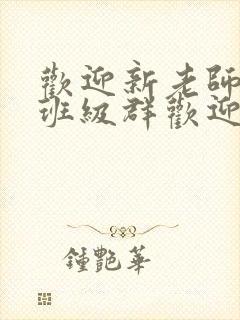 歡迎新老師
班級群歡迎
鍾艷華